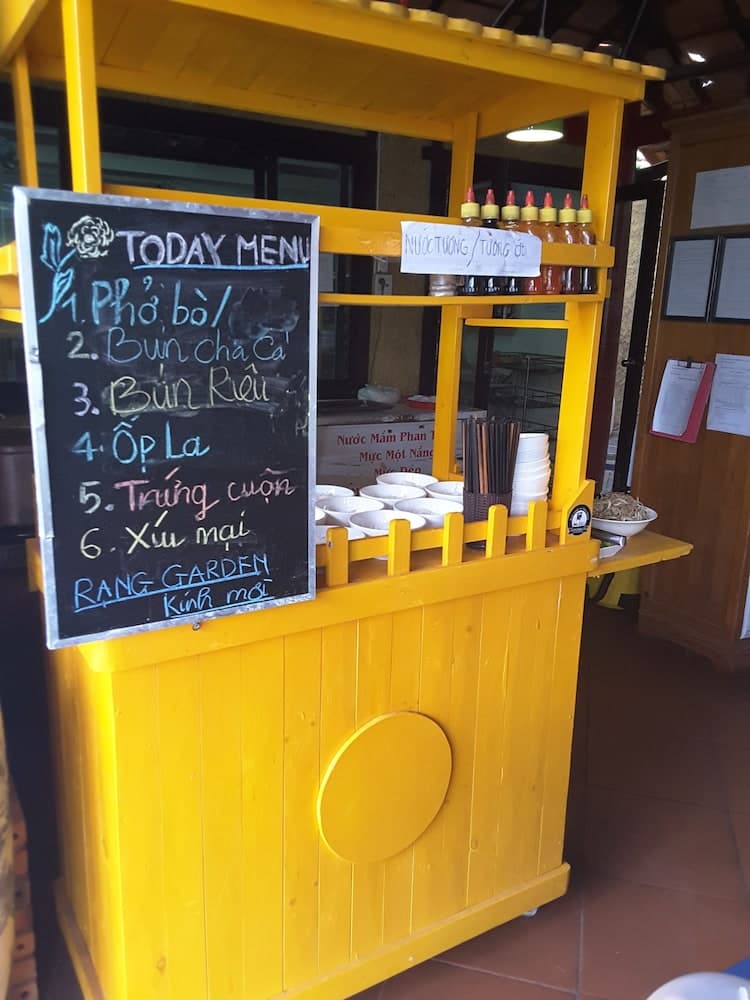 TODAY MENU
1. Phở bò/
2. Bún chả Cá
3. Bún Riêu
4 Ốp La
5. Trứng cuộn
6. Xíu mại
RẠNG GARDEN
Kính mời
NƯỚC TƯƠNG / TƯƠNG ỚT
Nước Mắm Phan T
Mực Một Nắng
Mực Dẻo